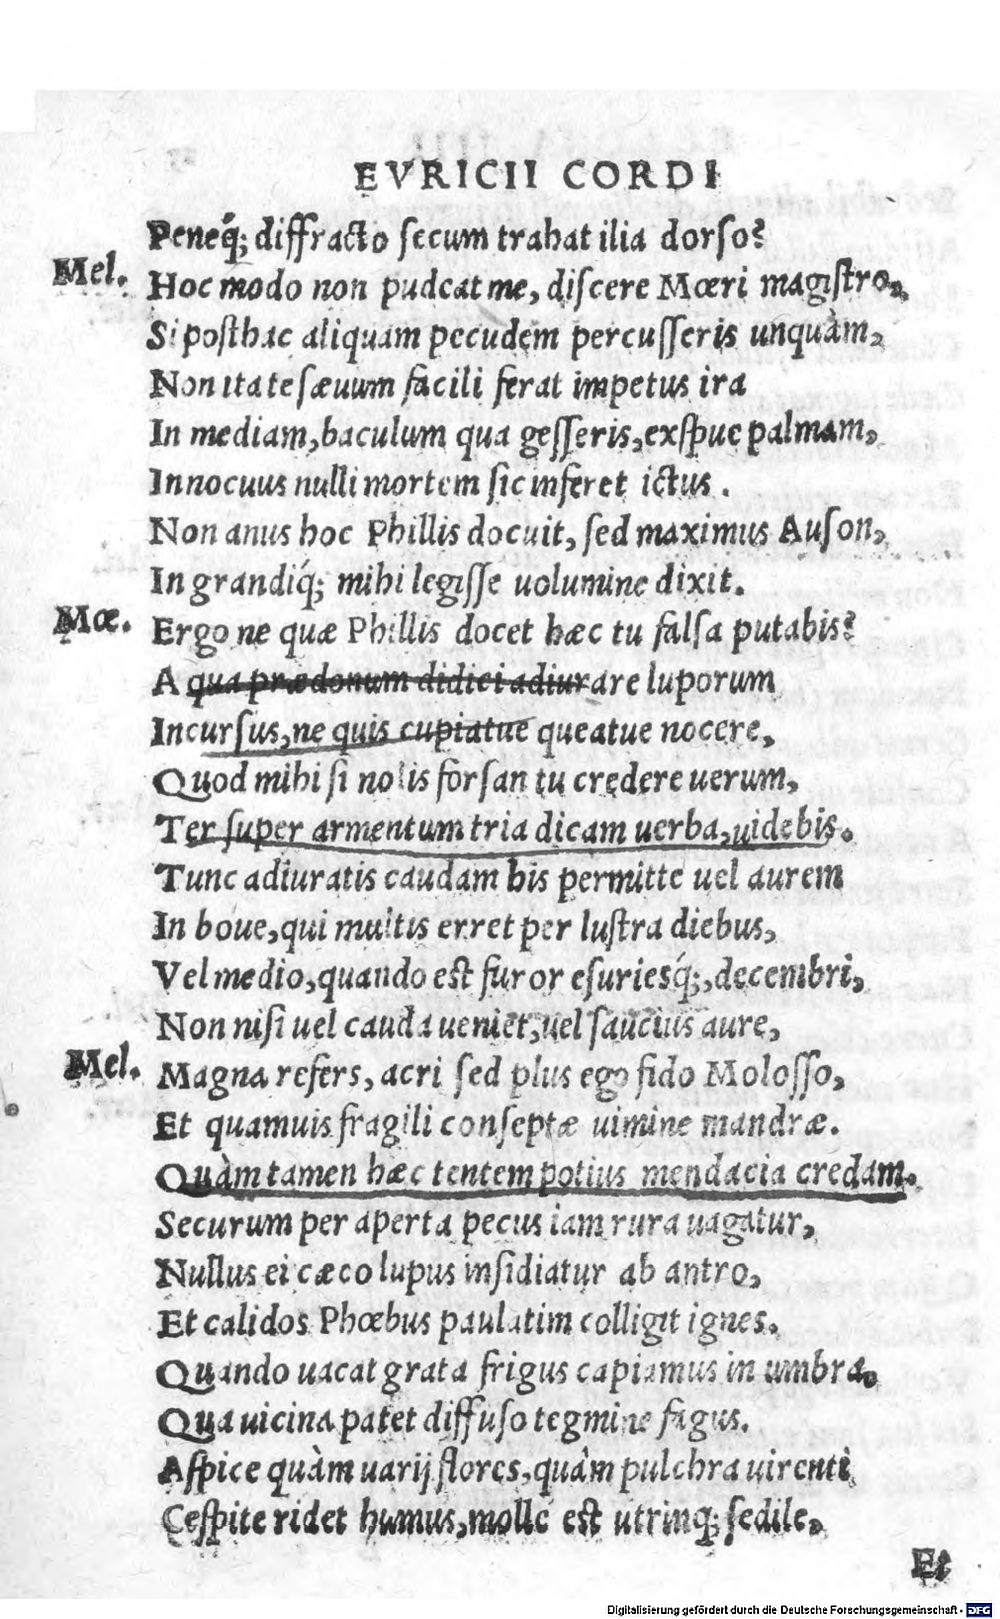 EVRICII CORDI
Peneq́; diffracto ſecum trahat ilia dorſo?
Mel. Hoc modo non pudeat me, diſcere Mœri magiſtro,
Si poſthac aliquam pecudem percuſſeris unquàm,
Non ita te ſæuum facili ferat impetus ira
In mediam, baculum qua geſſeris, exſpue palmam,
Innocuus nulli mortem ſic inferet ictus.
Non anus hoc Phillis docuit, ſed maximus Auſon,
In grandiq́; mihi legiſſe uolumine dixit.
Mœ. Ergo ne quæ Phillis docet hæc tu falſa putabis?
A qua prædonum didici adiurare luporum
Incurſus, ne quis cupiatue queatue nocere,
Quod mihi ſi nolis forſan tu credere uerum,
Ter ſuper armentum tria dicam uerba, uidebis.
Tunc adiuratis caudam bis permitte uel aurem
In boue, qui multis erret per luſtra diebus,
Vel medio, quando eſt furor eſuriesq́;, decembri,
Non niſi uel cauda ueniet, uel ſaucius aure,
Mel. Magna refers, acri ſed plus ego fido Moloſſo,
Et quamuis fragili conſeptæ uimine mandræ.
Quàm tamen hæc tentem potius mendacia credam.
Securum per aperta pecus iam rura uagatur,
Nullus ei cæco lupus inſidiatur ab antro,
Et calidos Phœbus paulatim colligit ignes.
Quando uacat grata frigus capiamus in umbra.
Qua uicina patet diffuſo tegmine fagus.
Aſpice quàm uarij flores, quàm pulchra uirenti
Ceſpite ridet humus, molle eſt utrinq; ſedile,
Et
Digitalisierung gefördert durch die Deutsche Forschungsgemeinschaft - DFG